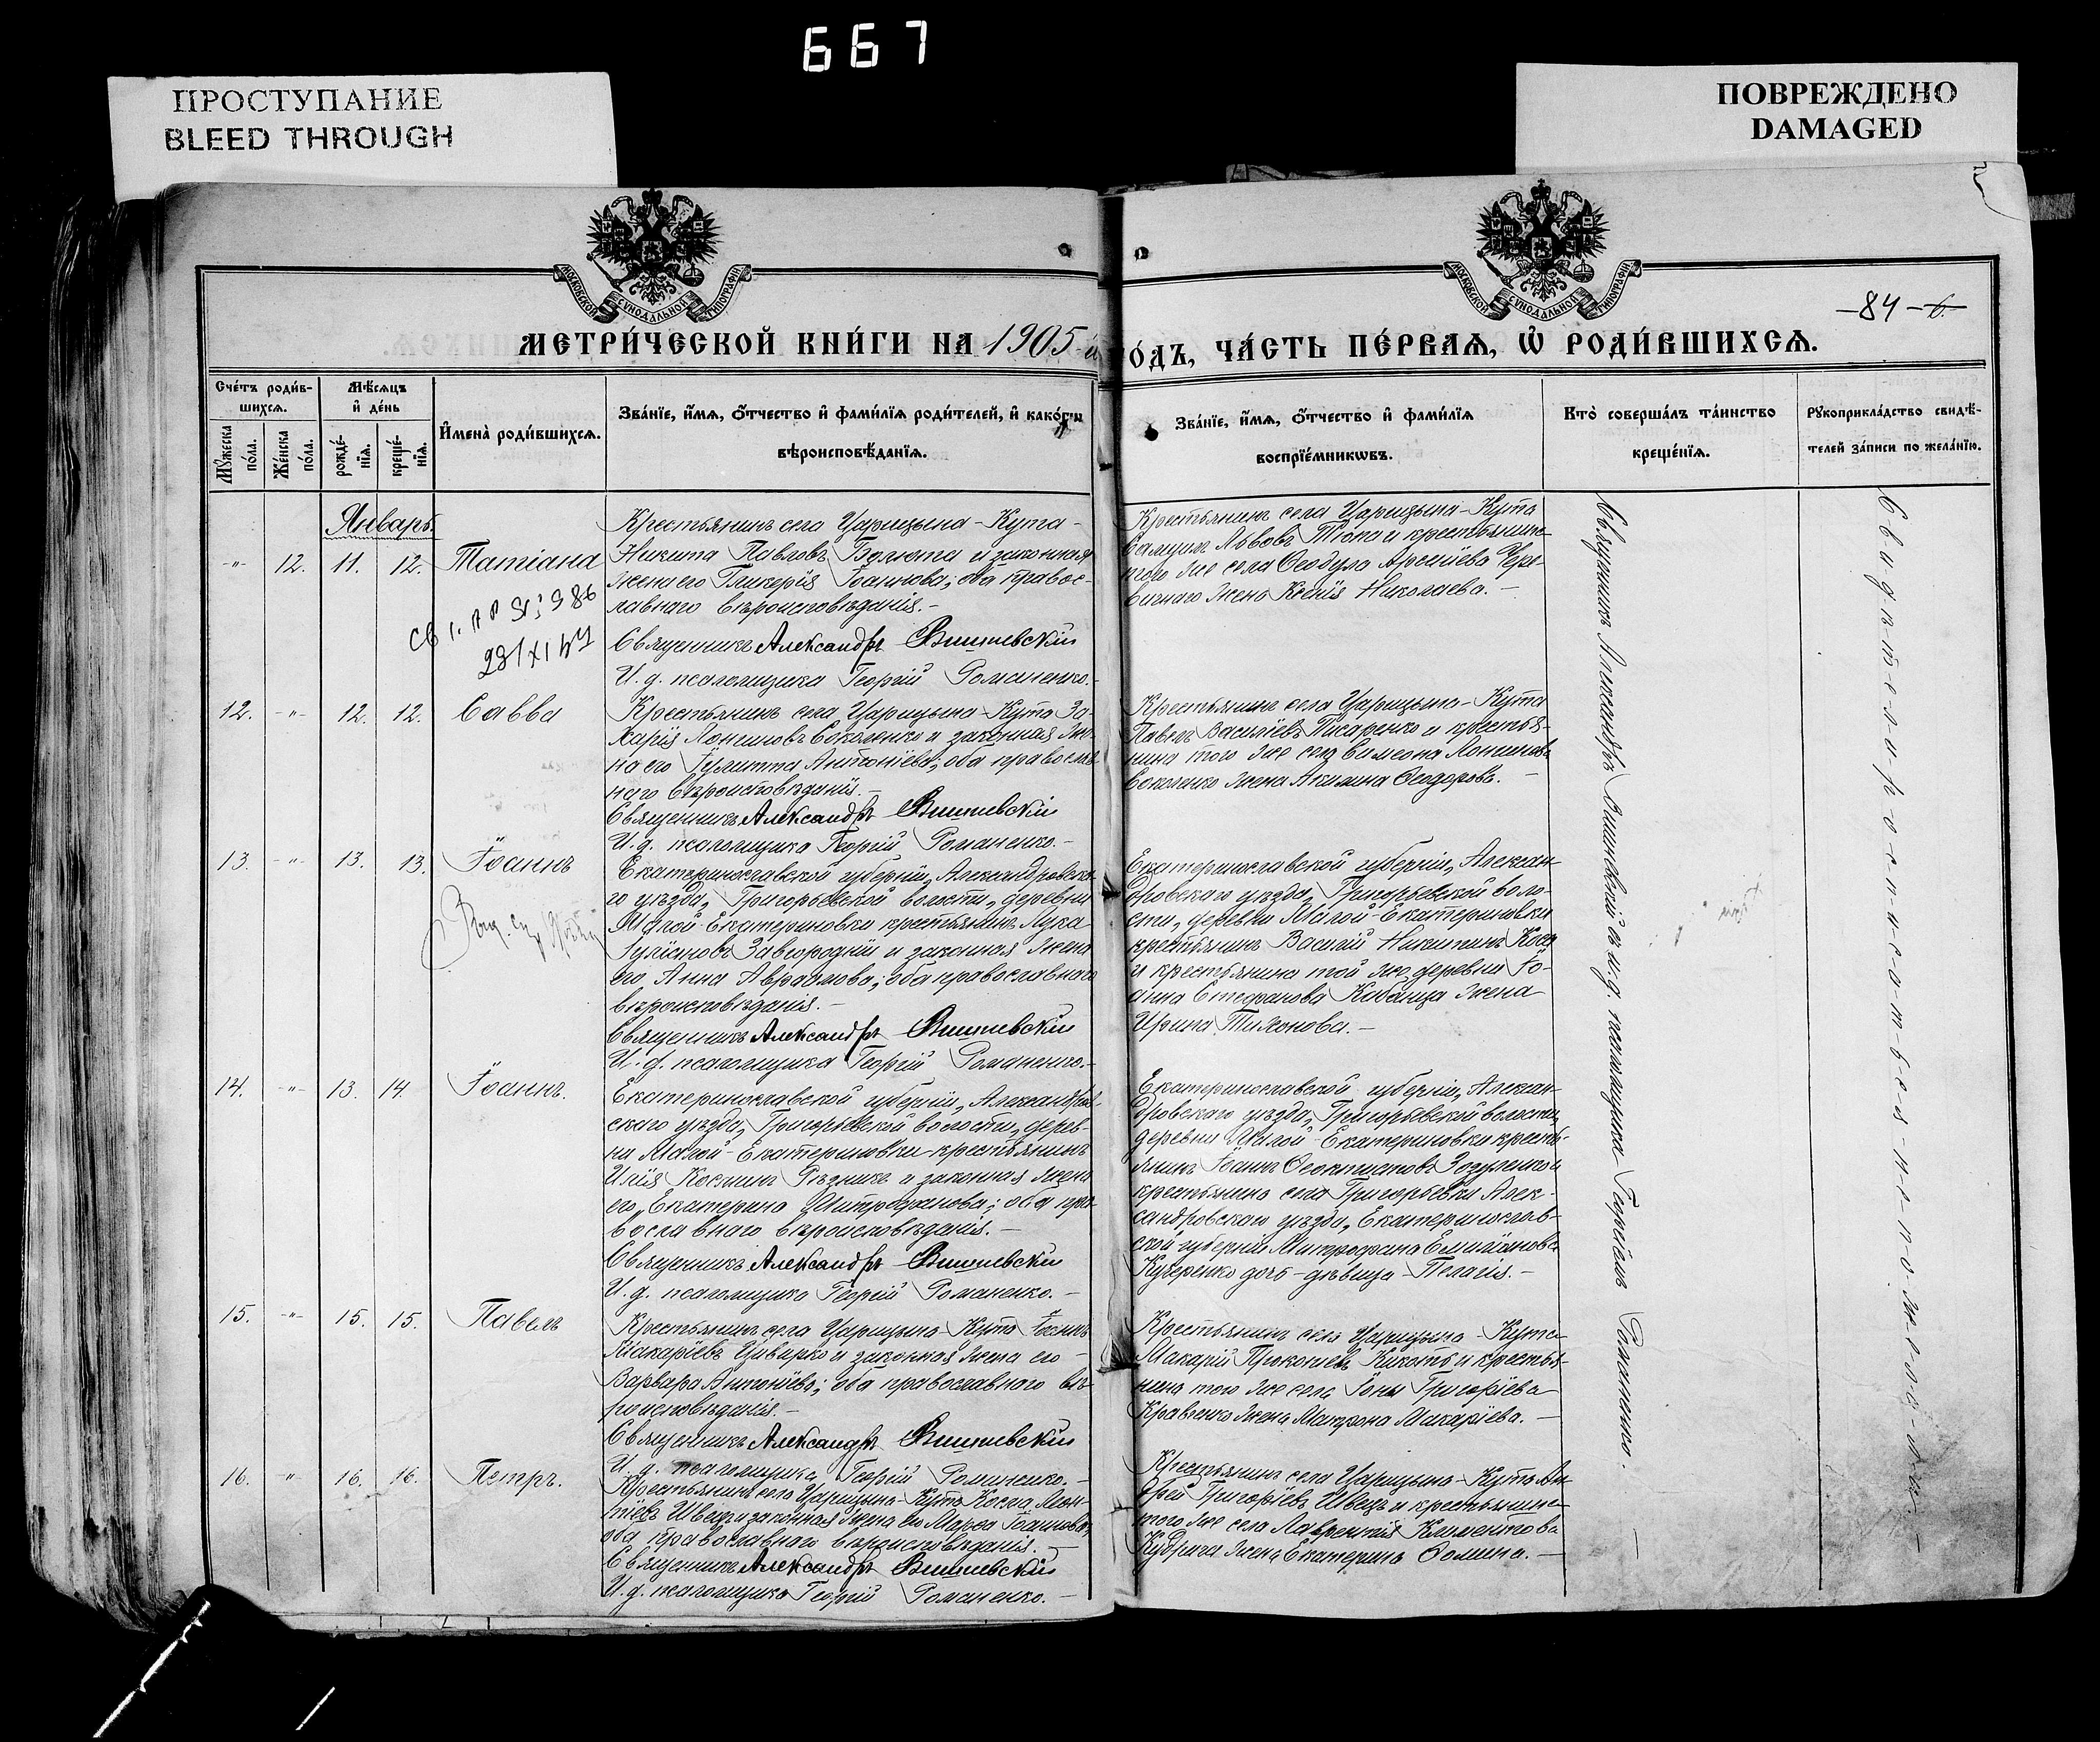 667
ПРОСТУПАНИЕ
BLEED THROUGH
ПОВРЕЖДЕНО
DAMAGED
МОСКОВСКОЙ СѴНОДАЛЬНОЙ ТИПОГРАФІИ
МОСКОВСКОЙ СѴНОДАЛЬНОЙ ТИПОГРАФІИ
-84-
МЕТРИ́ЧЕСКОЙ КНИ́ГИ НА 1905-й
О́ДЪ, ЧА́СТЬ ПЕ́РВАѦ, Ѡ҆ РОДИ́ВШИХСѦ.
Сче́тъ роди́в-
шихсѧ.
Мꙋ́жеска по́ла.
Же́нска по́ла.
Мѣ́сѧцъ
и҆ де́нь
рожде́-
нїѧ.
креще́-
нїѧ.
И҆мена̀ роди́вшихсѧ.
Зва́нїе, и҆́мѧ, ѻ҆́тчество и҆ фами́лїѧ роди́телей, и҆ како́гѡ
вѣроисповѣ́данїѧ.
Зва́нїе, и҆́мѧ, ѻ҆́тчество и҆ фами́лїѧ
воспрїе́мникѡвъ.
Кто̀ соверша́лъ та́инство
креще́нїѧ.
Рꙋкоприкла́дство свидѣ́-
телей за́писи по жела́нїю.
Январь.
-"- 12. 11. 12. Татіана
Крестьянинъ села Царицына-Кута-
Никита Павловъ и законная
жена его Гликерія Іоаннова; оба правос-
лавнаго вѣроисповѣданія.-
Священникъ Александръ Вишневскій
И. д. псаломщика Георгій Романенко.-
Крестьянинъ села Царицына-Кута
Львовъ и крестьянина
того же села Ѳеодула Арсеніева
жена Ксенія Николаева.-
12. -"- 12. 12. Савва
Крестьянинъ села Царицына-Кута За-
харія Лонгиновъ Соколенко и законная же-
на его Іулитта Антоніева; оба православ-
наго вѣроисповѣданія.-
Священникъ Александръ Вишневскій
И. д. псаломщика Георгій Романенко.-
Крестьянинъ села Царицына-Кута
Павелъ Василіевъ Писаренко и крестья-
нина того же села Симеона Лонгинова
Соколенко жена Акилина Ѳеодорова.-
13. -"- 13. 13. Іоаннъ
Екатеринославской губерніи, Александровска-
го уѣзда, Григорьевской волости, деревни
Малой-Екатериновки крестьянинъ Лука
Іуліановъ Завгородній и законная жена
его, Анна Авраамова; оба православнаго
вѣроисповѣданія.-
Священникъ Александръ Вишневскій
И. д. псаломщика Георгій Романенко.-
Екатеринославской губерніи, Алексан-
дровскаго уѣзда, Григорьевской воло-
сти, деревни Малой-Екатериновки
крестьянинъ Василій Никитинъ
и крестьянина той же деревни Іо-
анна Стефанова Кабанца жена
Ирина Тихонова.-
14. -"- 13. 14. Іоаннъ.
Екатеринославской губерніи, Александров-
скаго уѣзда, Григорьевской волости, дерев-
ни Малой-Екатериновки крестьянинъ
Илія Косминъ Рѣзникъ и законная жена
его, Екатерина Митрофанова; оба пра-
вославнаго вѣроисповѣданія.-
Священникъ Александръ Вишневскій
И. д. псаломщика Георгій Романенко.-
Екатеринославской губерніи, Алексан-
дровскаго уѣзда, Григорьевской волости,
деревни Малой-Екатериновки кресть-
янинъ Іоаннъ Ѳеоктистовъ Зозуленко и
крестьянина села Григорьевки Алек-
сандровскаго уѣзда, Екатеринослав-
ской губерніи Митрофана Емиліанова
Кучеренко дочь-дѣвица-Пелагія.-
15. -"- 15. 15. Павелъ
Крестьянинъ села Царицына-Кута Іоаннъ
Макаріевъ Цивирко и законная жена его
Варвара Антоніева; оба православнаго вѣ-
роисповѣданія.-
Священникъ Александръ Вишневскій
И. д. псаломщика Георгій Романенко.-
Крестьянинъ села Царицына-Кута
Макарій Прокопіевъ и крестья-
нина того же села Іоны Григоріева
Кравченко жена Матрона Макаріева.-
16. -"- 16. 16. Петръ.
Крестьянинъ села Царицына-Кута Косма Леон-
тіевъ Швецъ и законная жена его Марѳа Іоаннова;
оба православнаго вѣроисповѣданія.-
Священникъ Александръ Вишневскій
И. д. псаломщика Георгій Романенко.-
Крестьянинъ села Царицына-Кута Ан-
дрей Григоріевъ Швецъ и крестьянина
того же села Лаврентія Климентова
жена Екатерина Ѳомина.-
Священникъ Александръ Вишневскій съ и. д. псаломщика Георгіемъ Романенко.